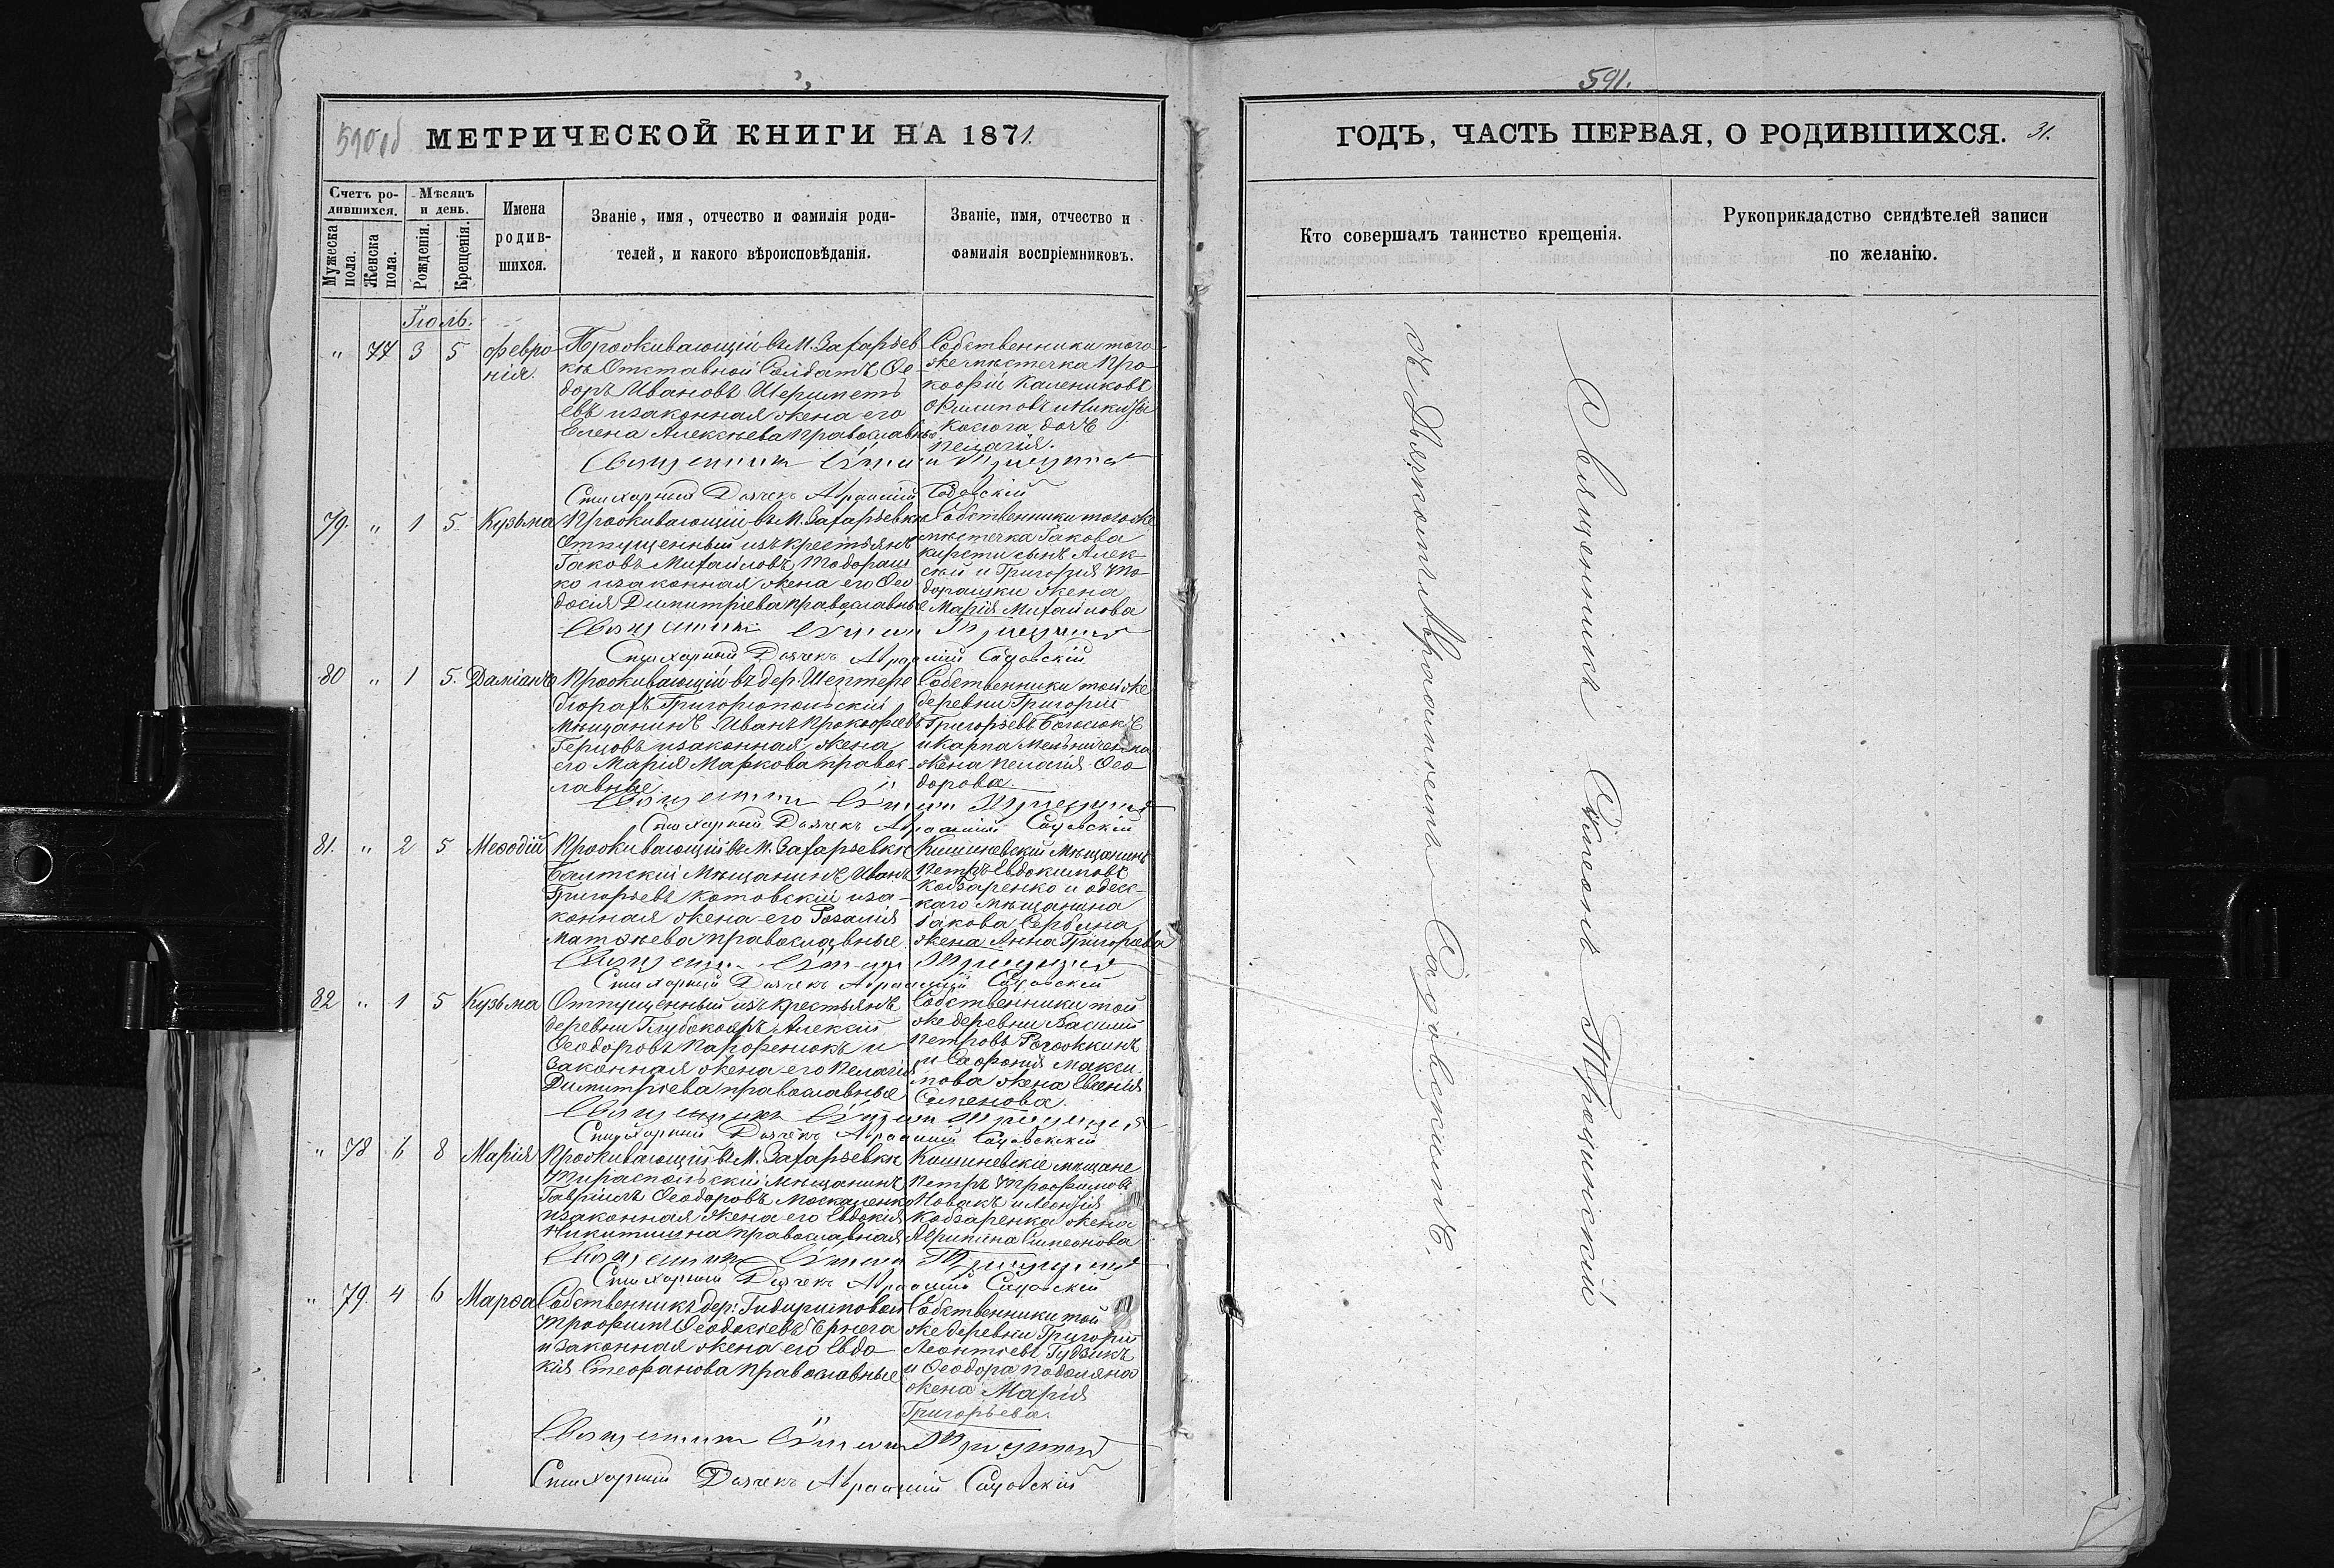 591.
590 об
МЕТРИЧЕСКОЙ КНИГИ НА 1871.
ГОДЪ, ЧАСТЬ ПЕРВАЯ, О РОДИВШИХСЯ. 31.
Счетъ ро-
дившихся.
Мѣсяцъ
и день.
Мужеска
пола.
Женска
пола.
Рожденія.
Крещенія.
Имена
родив-
шихся.
Званіе, имя, отчество и фамилія роди-
телей, и какого вѣроисповѣданія.
Званіе, имя, отчество и
фамилія воспріемниковъ.
Кто совершалъ таинство крещенія.
Рукоприкладство свидѣтелей записи
по желанію.
Іюль.
" 77 3 5
Февро
нія.
Проживающій въ М. Захарьев
кѣ Отставной Солдатъ Ѳе-
доръ Ивановъ Шеримет
евъ и законная жена его
Елена Алексѣева православные
Собственники того
же мѣстечка Про
кофій Калениковъ
дочь
Пелагія.
Стихарный Дьячекъ Авраамій Садовскій
79. " 1 5. Кузьма
Проживающій въ М. Захарьевкѣ
Отпущенный изъ крестьянъ
Іаковъ Михайловъ Тодораш
ко и законная жена его Ѳео
досія Димитріева православные
Собственники того же
мѣстечка Іакова
сынъ Алек-
сѣй и Григорія То
дорашки жена
Марія Михайлова
Стихарный Дьячекъ Авраамій Садовскій
80 " 1 5. Даміанъ
Проживающій въ дер. Шептере
Григоріопольскій
Мѣщанинъ Иванъ Прокофьевъ
Герцовъ и законная жена
его Марія Маркова правос-
лавные.
Собственники той же
деревни Григорій
Григорьевъ
и Карпа Мельниченка
жена Пелагія Ѳео
дорова.
Стихарный Дьячекъ Авраамій Садовскій
81. " 2 5 Меѳодій
Проживающій въ М. Захарьевкѣ
Балтскій Мѣщанинъ Иванъ
Григорьевъ Котовскій и за-
конная жена его Розалія
Матѳѣева православные
Кишиневскій Мѣщанинъ
Петръ Евдокимовъ
Кобзаренко и одес-
скаго Мѣщанина
Іакова Сербина
жена Анна Григорьева
Стихарный Дьячекъ Авраамій Садовскій
82 " 1 5 Кузьма
Отпущенный изъ крестьянъ
деревни Глубокояръ Алексій
Ѳеодоровъ Парфенюкъ и
законная жена его Пелагія
Димитріева православные
Собственники той
же деревни Василій
Петровъ
и Софонія Макси
мова жена Евгенія
Семенова.
Стихарный Дьячекъ Авраамій Садовскій
" 78 6 8 Марія
Проживающій въ М. Захарьевкѣ
Тираспольскій Мѣщанинъ
Гавріилъ Ѳеодоровъ Москаленко
и законная жена его Евдокія
Никитишна православная
Кишиневскіе мѣщане
Петръ Трофимовъ
Новакъ и Леонтія
Кобзаренка жена
Агрипина Симеонова
Стихарный Дьячекъ Авраамій Садовскій
" 79. 4 6 Марѳа
Собственникъ дер: Гидиримовой
Трофимъ Ѳеодосіевъ
и законная жена его Евдо-
кія Стефанова православные
Собственники той
же деревни Григорій
Леонтіевъ Гудзикъ
и Ѳеодора Подоляна
жена Марія
Григорьева.
Стихарный Дьячекъ Авраамій Садовскій
Священникъ Симеонъ Трощинскій
съ Дьячкомъ Авраамомъ Садовскимъ.